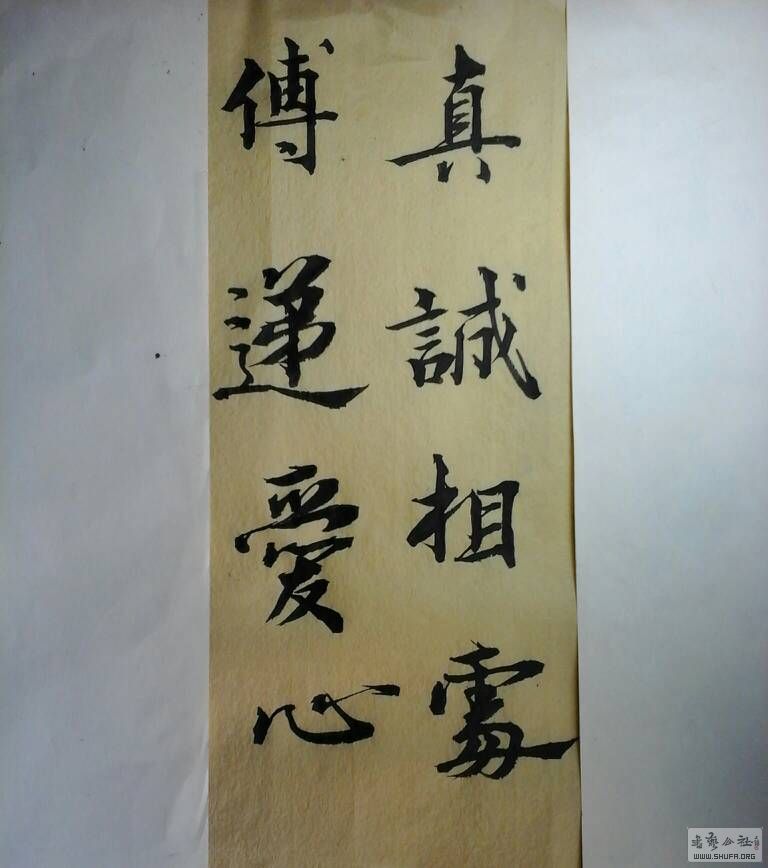 真誠相處
傅遞愛心
書藝公社
WWW.SHUFA.ORG